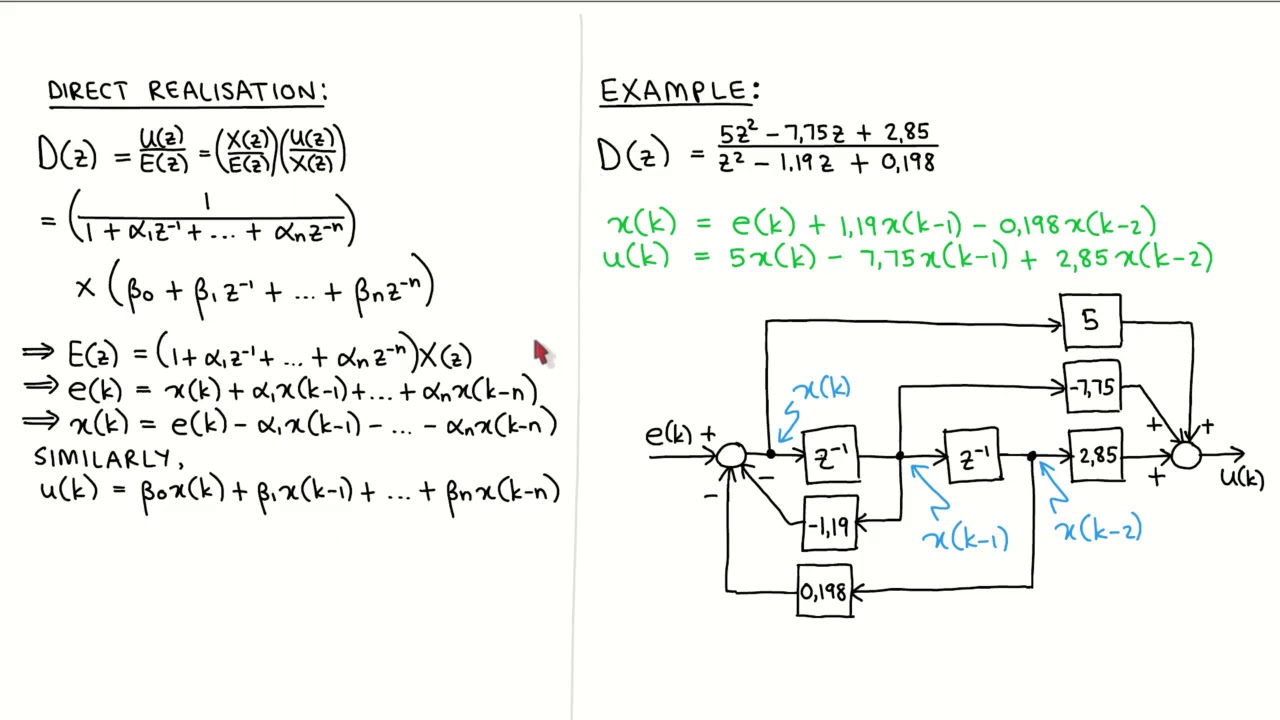 DIRECT REALISATION:
D(z) = U(z)/E(z) = (X(z)/E(z))(U(z)/X(z))
= (1/(1 + α₁z⁻¹ + ... + αₙz⁻ⁿ))
× (β₀ + β₁z⁻¹ + ... + βₙz⁻ⁿ)
⇒ E(z) = (1 + α₁z⁻¹ + ... + αₙz⁻ⁿ)X(z)
⇒ e(k) = x(k) + α₁x(k-1) + ... + αₙx(k-n)
⇒ x(k) = e(k) - α₁x(k-1) - ... - αₙx(k-n)
SIMILARLY,
u(k) = β₀x(k) + β₁x(k-1) + ... + βₙx(k-n)
EXAMPLE:
D(z) = (5z² - 7,75z + 2,85)/(z² - 1.19z + 0,198)
x(k) = e(k) + 1,19x(k-1) - 0,198x(k-2)
u(k) = 5x(k) - 7,75x(k-1) + 2,85x(k-2)
5
x(k)
-7,75
e(k) + - - z⁻¹ z⁻¹ 2,85 + + + u(k)
-1,19
x(k-1)
x(k-2)
0,198